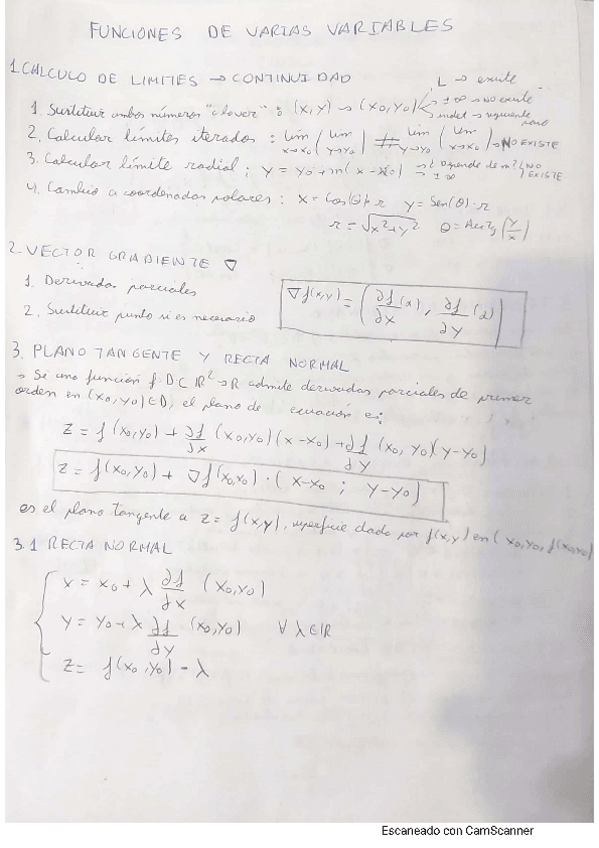 FUNCIONES DE VARIAS VARIABLES
1. CALCULO DE LIMITES → CONTINUIDAD
L → existe
1. Sustituir ambos números "clover" : (x,y) → (x0,y0)
±∞ → NO existe
indet → siguiente paso
2. Calcular límites iterados : lim x→x0 ( lim y→y0 ) ≠ lim y→y0 ( lim x→x0 ) → NO EXISTE
3. Calcular límite radial ; y = y0 + m(x - x0) → ¿Depende de m? ±∞ NO EXISTE
4. Cambio a coordenadas polares : x = Cos(θ)·r y = Sen(θ)·r
r = √x²+y² θ = Arctg (y/x)
2. VECTOR GRADIENTE ∇
1. Derivadas parciales
2. Sustituir punto si es necesario
∇f(x,y) = ( ∂f/∂x (a), ∂f/∂y (a) )
3. PLANO TANGENTE Y RECTA NORMAL
→ Si una función f: D⊂ R² → R admite derivadas parciales de primer
orden en (x0,y0)∈D, el plano de ecuación es:
z = f(x0,y0) + ∂f/∂x (x0,y0)(x-x0) + ∂f/∂y (x0,y0)(y-y0)
z = f(x0,y0) + ∇f(x0,y0) · (x-x0 ; y-y0)
es el plano tangente a z = f(x,y), superficie dada por f(x,y) en (x0,y0,f(x0,y0)
3.1 RECTA NORMAL
x = x0 + λ ∂f/∂x (x0,y0)
y = y0 + λ ∂f/∂y (x0,y0) ∀ λ∈R
z = f(x0,y0) - λ
Escaneado con CamScanner